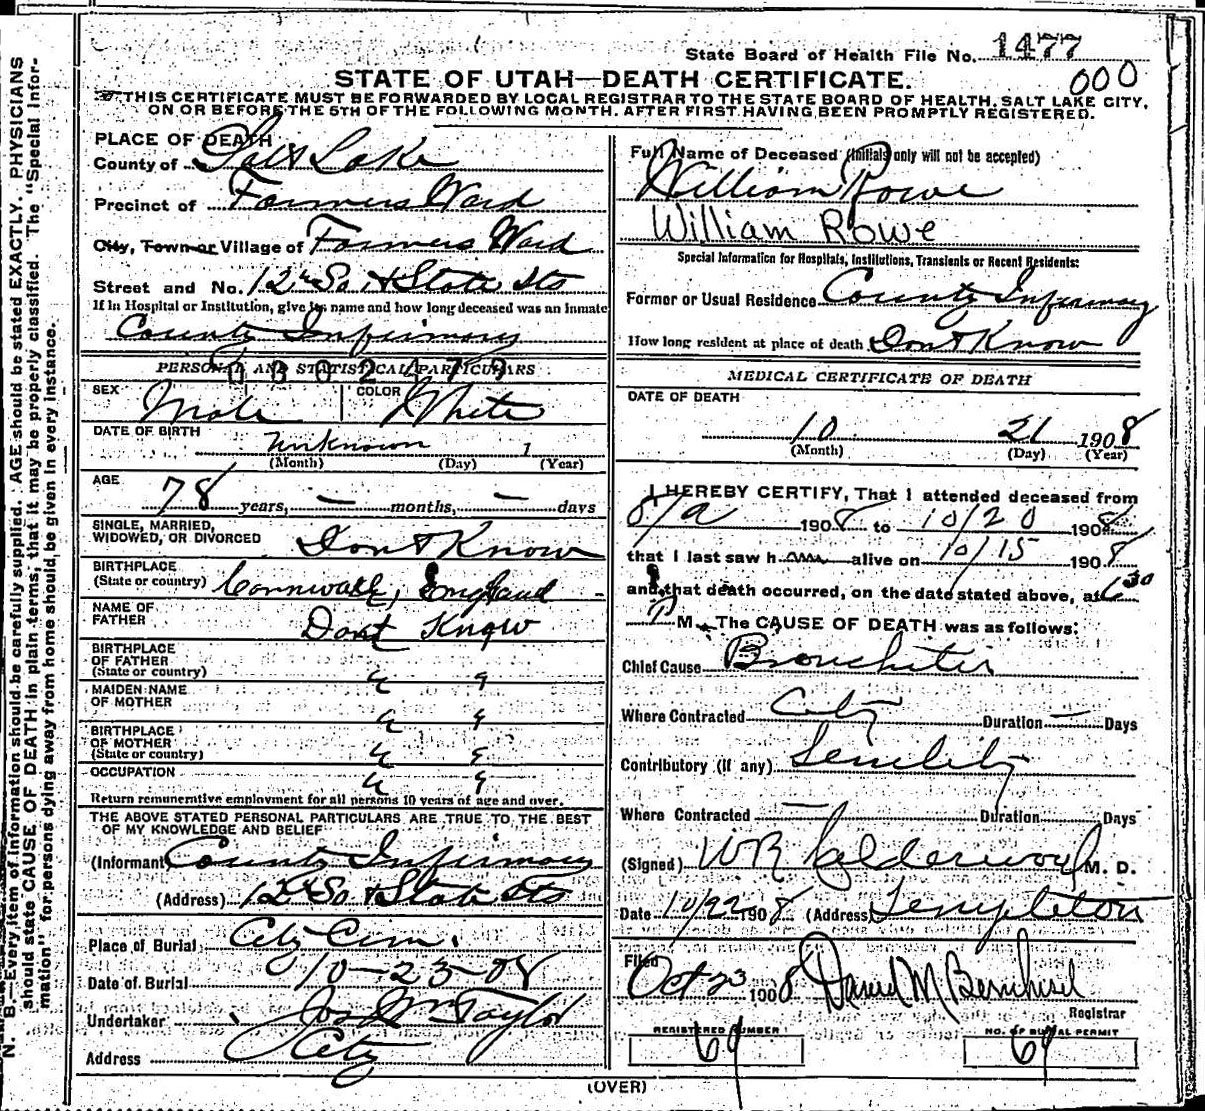 State Board of Health File No. 1477
000
STATE OF UTAH—DEATH CERTIFICATE.
THIS CERTIFICATE MUST BE FORWARDED BY LOCAL REGISTRAR TO THE STATE BOARD OF HEALTH, SALT LAKE CITY,
ON OR BEFORE THE 5TH OF THE FOLLOWING MONTH, AFTER FIRST HAVING BEEN PROMPTLY REGISTERED.
N. B.—Every item of information should be carefully supplied. AGE should be stated EXACTLY. PHYSICIANS
should state CAUSE OF DEATH in plain terms, that it may be properly classified. The "Special Infor-
mation" for persons dying away from home should be given in every instance.
PLACE OF DEATH
County of Salt Lake
Precinct of Farmers Ward
City, Town or Village of Farmers Ward
Street and No. 12th So & State Sts
If in Hospital or Institution, give its name and how long deceased was an inmate
County Infirmary
PERSONAL AND STATISTICAL PARTICULARS
SEX Male COLOR White
DATE OF BIRTH unknown 1
(Month) (Day) (Year)
AGE
78 years, — months, — days
SINGLE, MARRIED,
WIDOWED, OR DIVORCED Dont Know
BIRTHPLACE
(State or country) Cornwall, England
NAME OF
FATHER Dont Know
BIRTHPLACE
OF FATHER
(State or country) " "
MAIDEN NAME
OF MOTHER " "
BIRTHPLACE
OF MOTHER
(State or country) " "
OCCUPATION " "
Return remunerative employment for all persons 10 years of age and over.
THE ABOVE STATED PERSONAL PARTICULARS ARE TRUE TO THE BEST
OF MY KNOWLEDGE AND BELIEF
(Informant County Infirmary
(Address) 12th So & State Sts
Place of Burial City Cem.
Date of Burial 10-23-08
Undertaker Jos Wm Taylor
Address City
Full Name of Deceased (Initials only will not be accepted)
William Rowe
William Rowe
Special Information for Hospitals, Institutions, Transients or Recent Residents:
Former or Usual Residence County Infirmary
How long resident at place of death Dont Know
MEDICAL CERTIFICATE OF DEATH
DATE OF DEATH
10 21 1908
(Month) (Day) (Year)
I HEREBY CERTIFY, That I attended deceased from
1908 to 10/20 1908
that I last saw him alive on 10/15 1908
and that death occurred, on the date stated above, at 6 30
P M. The CAUSE OF DEATH was as follows:
Chief Cause Bronchitis
Where Contracted City Duration — Days
Contributory (if any) Senility
Where Contracted — Duration — Days
(Signed) WR Calderwood M. D.
Date 10/22 1908 (Address) Templeton
Filed
Oct 23 1908 David M Bernhisel
Registrar
REGISTERED NUMBER
NO. OF BURIAL PERMIT
69
69
(OVER)